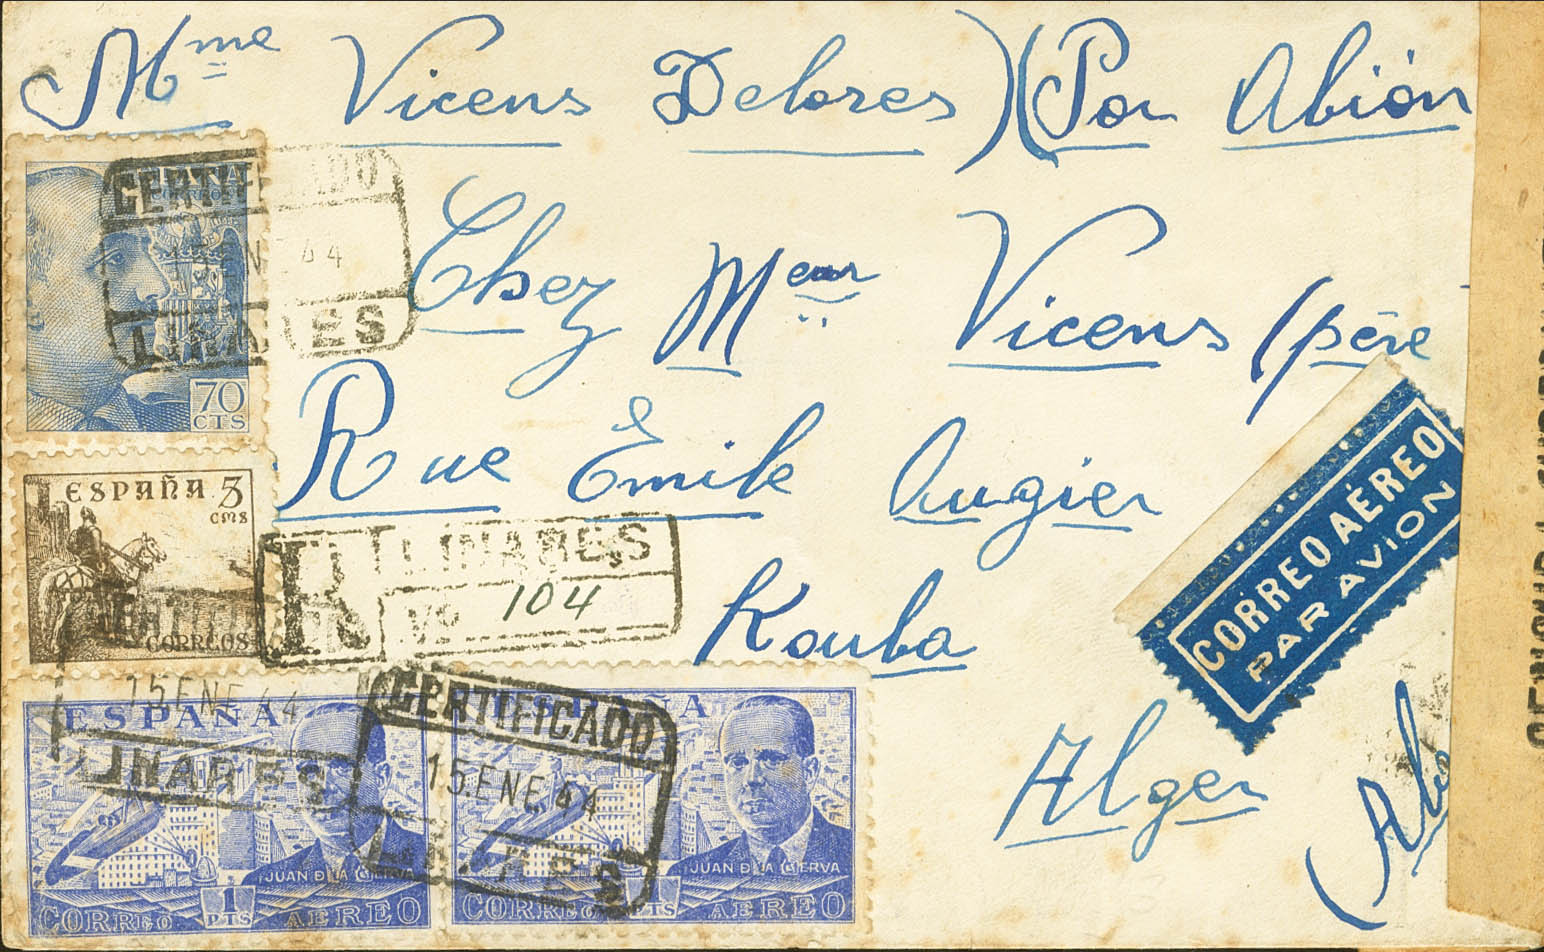 Mme Vicens Delores) (Por Abión
Chez Meur Vicens (père
Rue Émile Augier
Kouba
Alger
CORREO AÉREO
PAR AVION
ESPAÑA
CORREOS
70
CTS
CERTIFICADO
15 ENE 44
LINARES
ESPAÑA 5
CMS
CORREOS
R LINARES
Nº 104
15 ENE 44
LINARES
CERTIFICADO
15 ENE 44
LINARES
ESPAÑA
JUAN DE LA CIERVA
1
PTS
CORREO AEREO
ESPAÑA
JUAN DE LA CIERVA
PTS
CORREO AEREO